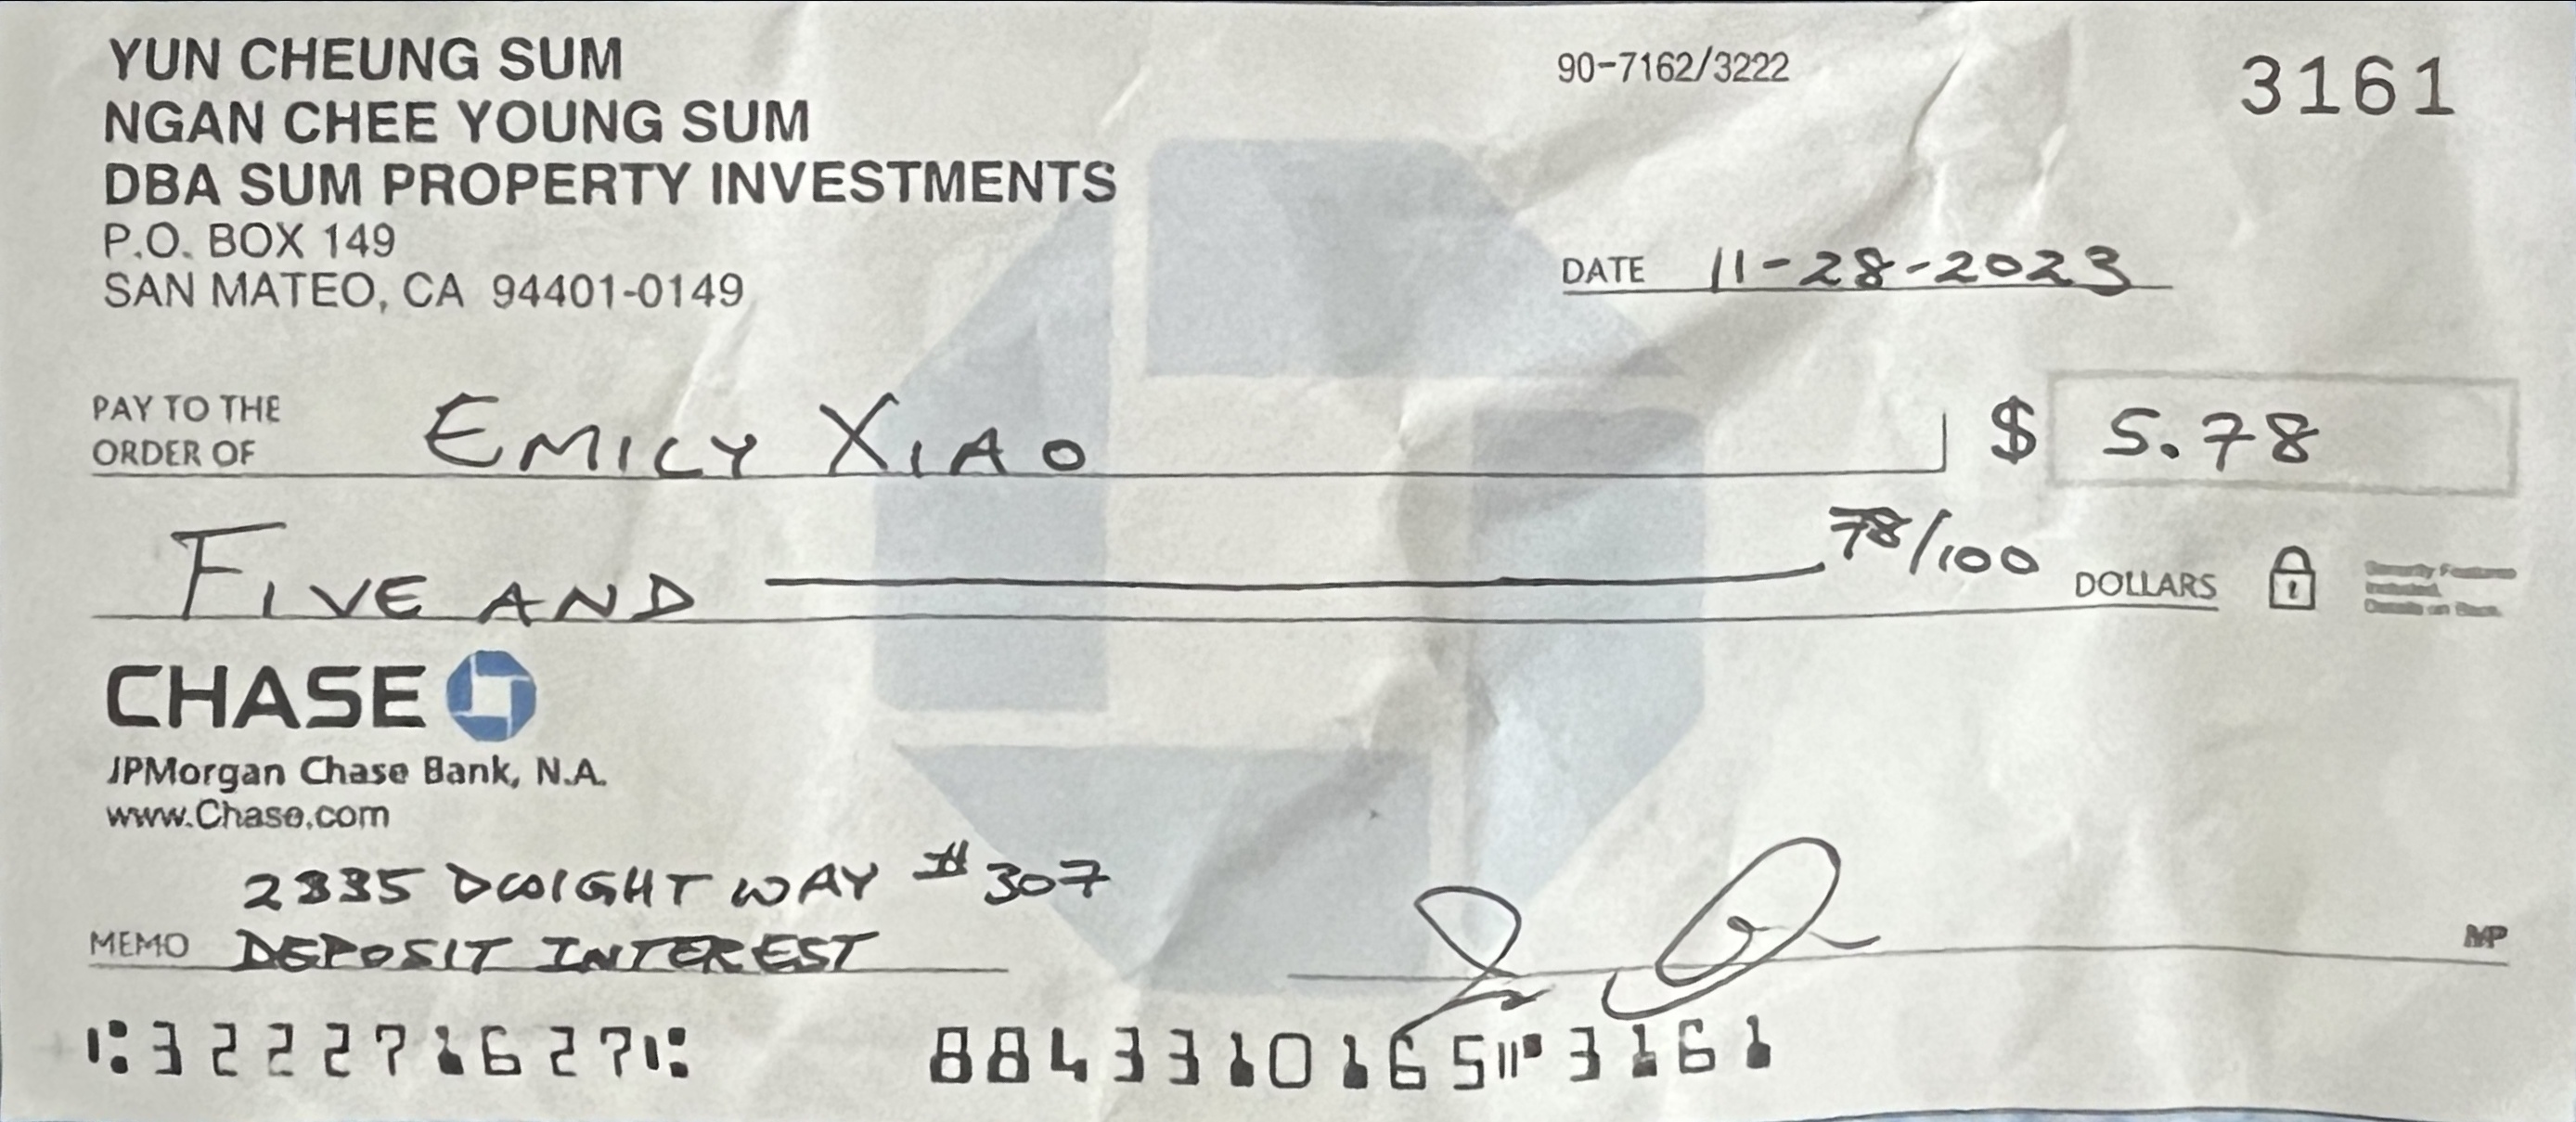 YUN CHEUNG SUM
NGAN CHEE YOUNG SUM
DBA SUM PROPERTY INVESTMENTS
P.O. BOX 149
SAN MATEO, CA 94401-0149
90-7162/3222
3161
DATE 11-28-2023
PAY TO THE
ORDER OF EMILY XIAO $ 5.78
FIVE AND 78/100 DOLLARS
Security Features
Included.
Details on Back.
CHASE
JPMorgan Chase Bank, N.A.
www.Chase.com
2335 DWIGHT WAY #307
MEMO DEPOSIT INTEREST
MP
⑆322271627⑆ 884331016 5⑈3161